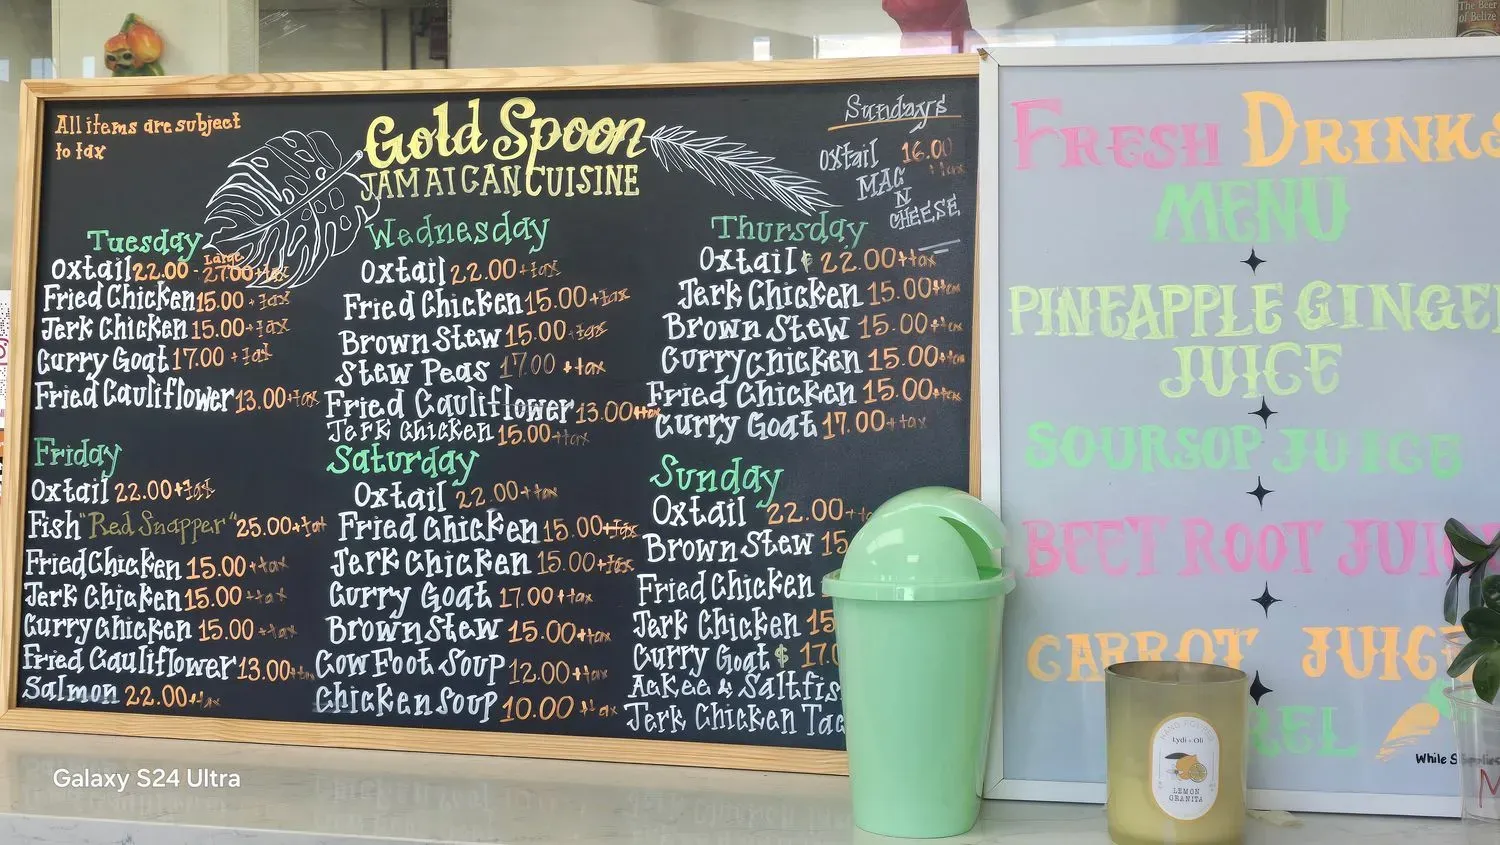 All items are subject
to tax
Gold Spoon
JAMAICAN CUISINE
Sundays
Oxtail 16.00
+tax
MAC
N
CHEESE
Tuesday
Large
Oxtail 22.00 - 27.00+tax
Fried Chicken 15.00 +tax
Jerk Chicken 15.00+tax
Curry Goat 17.00 +tax
Fried Cauliflower 13.00+tax
Wednesday
Oxtail 22.00+tax
Fried Chicken 15.00+tax
Brown Stew 15.00+tax
Stew Peas 17.00 +tax
Fried Cauliflower 13.00+tax
Jerk Chicken 15.00+tax
Thursday
Oxtail $ 22.00+tax
Jerk Chicken 15.00+tax
Brown Stew 15.00+tax
Curry Chicken 15.00+tax
Fried Chicken 15.00+tax
Curry Goat 17.00+tax
Friday
Oxtail 22.00+tax
Fish "Red Snapper" 25.00+tax
Fried Chicken 15.00+tax
Jerk Chicken 15.00+tax
Curry Chicken 15.00 +tax
Fried Cauliflower 13.00+tax
Salmon 22.00+tax
Saturday
Oxtail 22.00+tax
Fried Chicken 15.00+tax
Jerk Chicken 15.00+tax
Curry Goat 17.00+tax
Brown Stew 15.00+tax
Cow Foot Soup 12.00+tax
Chicken Soup 10.00 +tax
Sunday
Oxtail 22.00+
Brown Stew 15
Fried Chicken
Jerk Chicken 15
Curry Goat $ 17.0
Ackee & Saltfis
Jerk Chicken Tac
FRESH DRINKS
MENU
PINEAPPLE GINGER
JUICE
SOURSOP JUICE
BEET ROOT JUIC
CARROT JUICE
REL
While S
The Beer
of Belize
Lydi & Oli
LEMON
GRANITA
Galaxy S24 Ultra